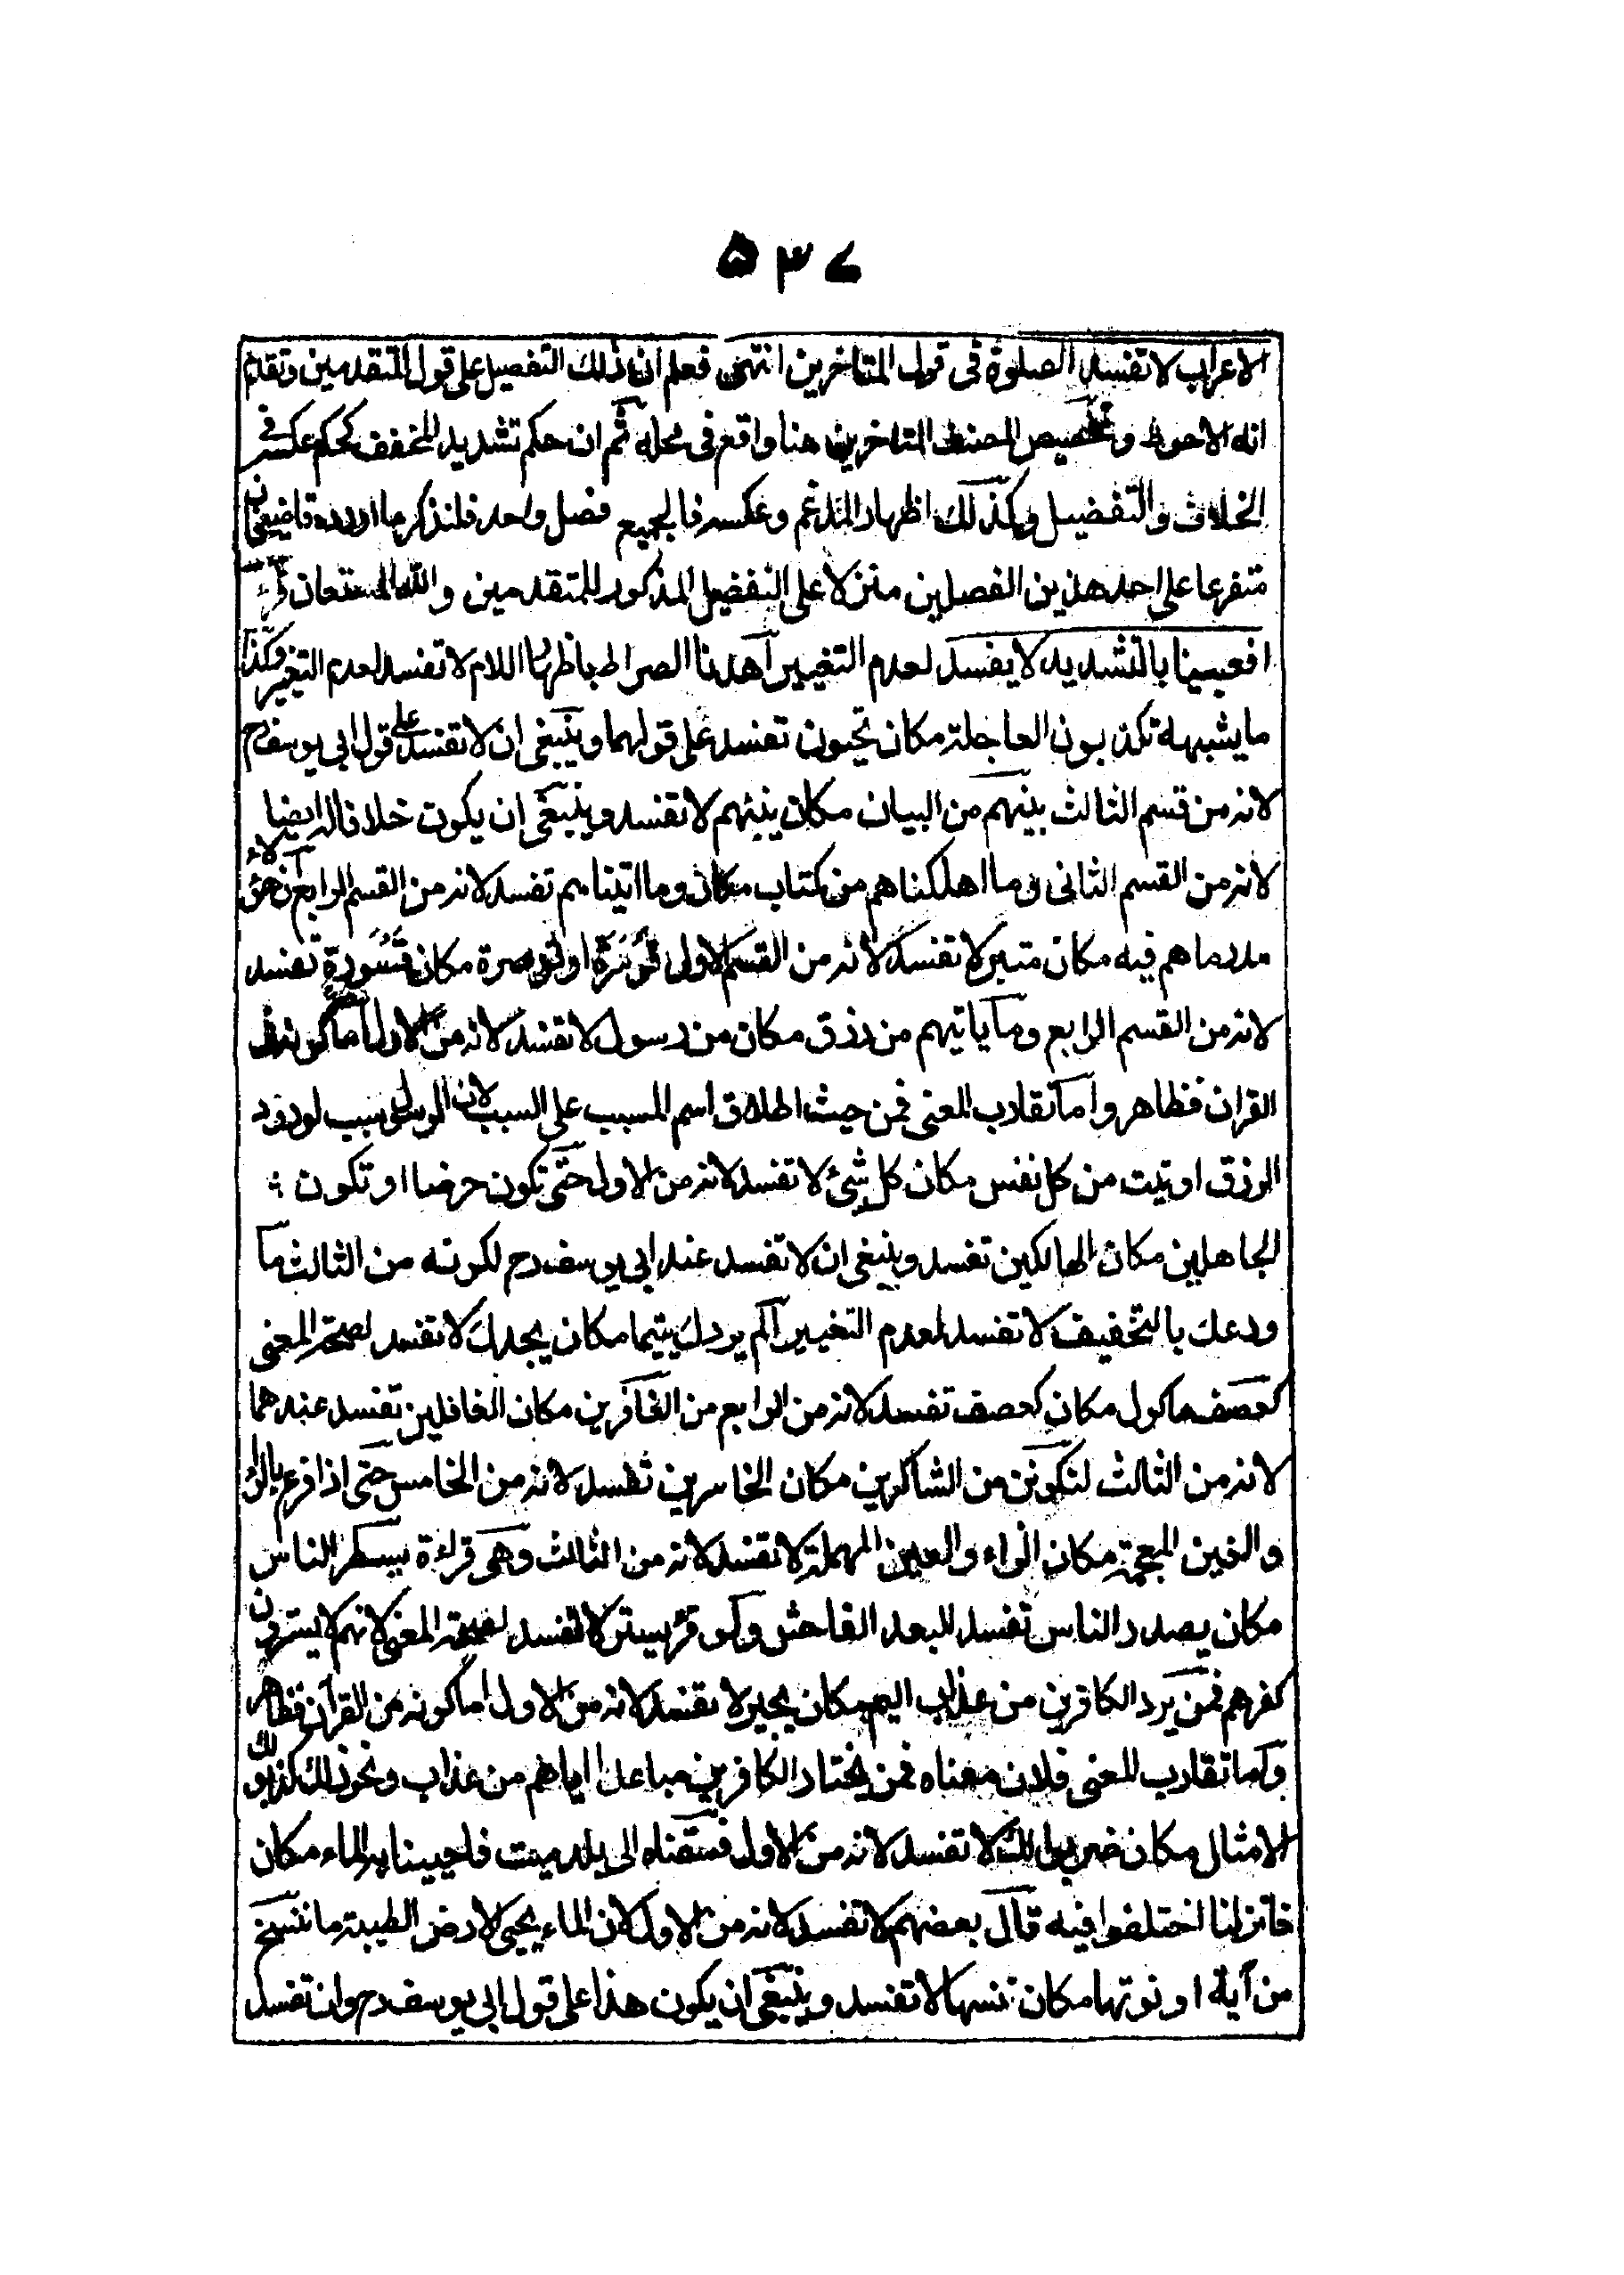 ۵۳۷
الاعراب لا تفسد الصلوة فى قول المتاخرين انتهى فعلم ان ذلك التفصيل على قول المتقدمين وتقدم
انه الاحوط وتخصيص المصنف المتاخرين هنا واقع فى محله ثم ان حكم تشديد المخفف كحكم عكسه فى
الخلاف والتفضيل وكذلك اظهار المدغم وعكسه فالجميع فصل واحد فلنذكر ما اورده قاضيخان
متفرعا على احد هذين الفصلين منزلا على التفضيل المذكور للمتقدمين والله المستعان قرئ
افعيينا بالتشديد لا يفسد لعدم التغيير اهدنا الصراط باظهار اللام لا تفسد لعدم التغيير وكذا
ما يشبهه تكذبون العاجلة مكان تحبون تفسد على قولهما وينبغى ان لا تفسد على قول ابى يوسف رح
لانه من قسم الثالث بينهم من البيان مكان ينبئهم لا تفسد وينبغى ان يكون خلافا له ايضا
لانه من القسم الثانى وما اهلكناهم من كتاب مكان وما اتيناهم تفسد لانه من القسم الرابع ان هؤلاء
مدبر ما هم فيه مكان متبر لا تفسد لانه من القسم الاول او قوصرة مكان قسورة تفسد
لانه من القسم الرابع وما ياتيهم من رزق مكان من رسول لا تفسد لانه من الاول اما كونه فى
القران فظاهر واما تقارب المعنى فمن حيث اطلاق اسم المسبب على السبب لان الرسول سبب لورود
الرزق اوتيت من كل نفس مكان كل شئ لا تفسد لانه من الاول حتى تكون حرضا او تكون
الجاهلين مكان الهالكين تفسد وينبغى ان لا تفسد عند ابى يوسف رح لكونه من الثالث ما
ودعك بالتخفيف لا تفسد لعدم التغيير الم يردك يتيما مكان يجدك لا تفسد لصحة المعنى
كعصف ماكول مكان كعصف تفسد لانه من الرابع من الغافرين مكان الغافلين تفسد عندهما
لانه من الثالث لنكونن من الشاكرين مكان الخاسرين تفسد لانه من الخامس حتى اذا فرغ بالراء
والغين المعجمة مكان الزاء والعين المهملة لا تفسد لانه من الثالث وهى قراءة يسطر الناس
مكان يصدر الناس تفسد للبعد الفاحش ولو قرئ يستر لا تفسد لصحة المعنى لانهم لا يسترون
كفرهم فمن يرد الكافرين من عذاب اليم مكان يجير لا تفسد لانه من الاول اما كونه من القرآن فظاهر
واما تقارب المعنى فلان معناه فمن يختار الكافرين مباعدا اياهم من عذاب ونحو ذلك كذبوا لك
الامثال مكان ضربوا لك لا تفسد لانه من الاول فسقناه الى بلد ميت فاحيينا به الماء مكان
فانزلنا اختلفوا فيه قال بعضهم لا تفسد لانه من الاول لان الماء يحيى الارض الطيبة ما ننسخ
من آية او نوتها مكان ننسها لا تفسد وينبغى ان يكون هذا على قول ابى يوسف رح وان تفسد